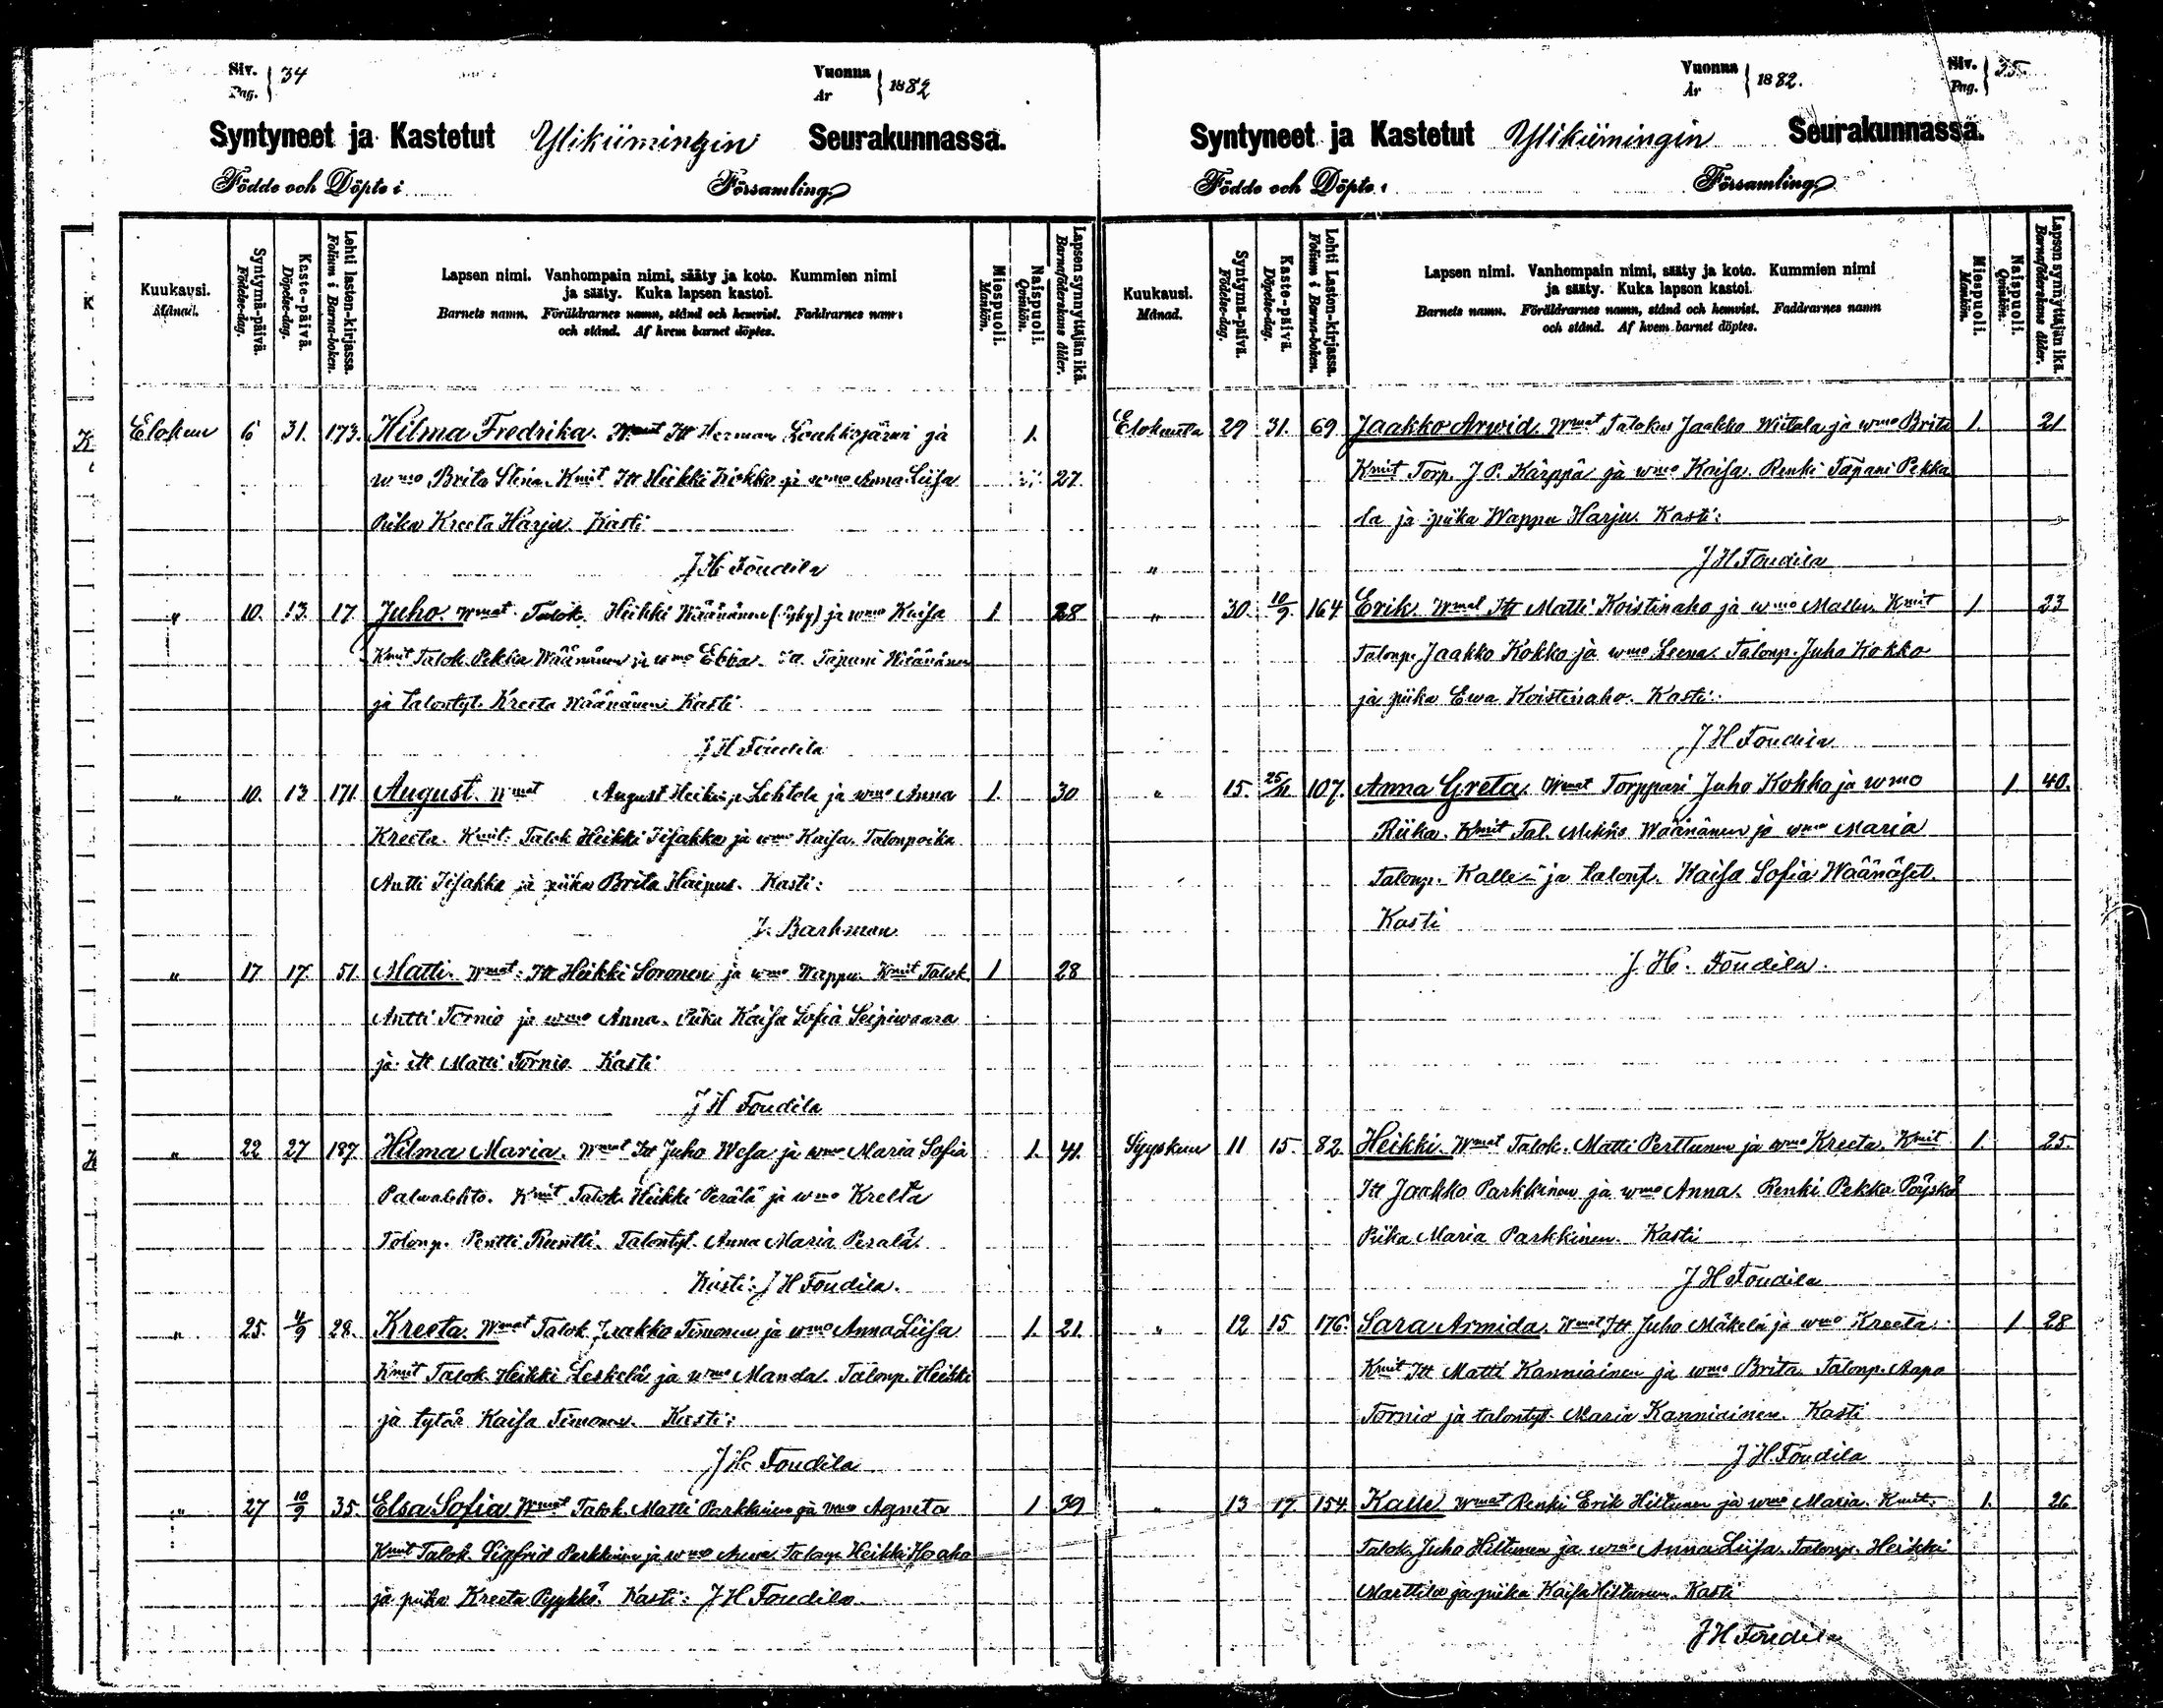 Siv. Pag. } 34 Vuonna År } 1882
Syntyneet ja Kastetut Ylikiimingin Seurakunnassa.
Födde och Döpte i Församling
Kuukausi. Månad.
Syntymä-päivä. Födelse-dag.
Kaste-päivä. Döpelse-dag.
Lehti lasten-kirjassa. Folium i Barna-boken.
Lapsen nimi. Vanhempain nimi, sääty ja koto. Kummien nimi
ja sääty. Kuka lapsen kastoi.
Barnets namn. Föräldrarnes namn, stånd och hemvist. Faddrarnes namn
och stånd. Af hvem barnet döptes.
Miespuoli. Mankön.
Naispuoli. Qvinkön.
Lapsen synnyttäjän ikä. Barnaföderskans ålder.
Elokuu 6 31. 173. Hilma Fredrika. Wmat Itt Herman Laahkojärwi ja 1.
wmo Brita Stina. Kmit Itt Heikki Kokko ja wmo Anna Liisa 27.
Piika Kreeta Harju. Kasti
J H Toudila
" 10. 13. 17. Juho. Wmat Talok. Heikki Wäänänen ja wmo Kaisa 1 28
Kmit Talok. Pekka Wäänänen ja wmo Ebba. Tapani Wäänänen
ja talontyt. Kreeta Wäänänen Kasti
J H Toudila
" 10. 13 171 August. Wmat August Heikinp. Lehtola ja wmo Anna 1. 30
Kreeta. Kmit. Talok Heikki Iisakka ja wmo Kaisa. Talonpoika
Antti Iisakka ja piika Brita Haipus. Kasti:
J. Barkman
" 17 17 51. Matti. Wmat: Itt Heikki Soronen ja wmo Wappu. Kmit Talok 1 28
Antti Tornio ja wmo Anna. Piika Kaisa Sofia Leipiwaara
ja itt Matti Tornio. Kasti
J H Toudila
" 22 27 187. Hilma Maria. Wmat Itt Juho Wesa ja wmo Maria Sofia 1. 41.
Palwalehto. Kmit Talok. Heikki Perälä ja wmo Kreeta
Talonp. Pentti Runtti. Talontyt. Anna Maria Perälä.
Kasti: J H Toudila.
" 25. 4/9 28. Kreeta. Wmat Talok Jaakko Timonen ja wmo Anna Liisa 1. 21.
Kmit Talok. Heikki Leskelä ja wmo Manda. Talonp. Heikki
ja tytär Kaisa Timonen. Kasti:
J H Toudila
" 27 10/9 35. Elsa Sofia. Wmat Talok. Matti Parkkinen ja wmo Agneta 1 39
Kmit Talok. Sigfrid Parkkinen ja wmo talonp. Heikki Hoaho
ja piika Kreeta Pyykkö. Kasti: J H Toudila.
Vuonna År } 1882. Siv. Pag. } 35.
Syntyneet ja Kastetut Ylikiimingin Seurakunnassa.
Födde och Döpte i Församling
Kuukausi. Månad.
Syntymä-päivä. Födelse-dag.
Kaste-päivä. Döpelse-dag.
Lehti Lasten-kirjassa. Folium i Barna-boken.
Lapsen nimi. Vanhempain nimi, sääty ja koto. Kummien nimi
ja sääty. Kuka lapsen kastoi.
Barnets namn. Föräldrarnes namn, stånd och hemvist. Faddrarnes namn
och stånd. Af hvem barnet döptes.
Miespuoli. Mankön.
Naispuoli. Qvinkön.
Lapsen synnyttäjän ikä. Barnaföderskans ålder.
Elokuuta 29 31. 69 Jaakko Arwid. Wmat Talokas Jaakko Wiitala ja wmo Brita 1. 21
Kmit Torp. J P. Kärppä ja wmo Kaisa. Renki Tapani Pekka
la ja piika Wappu Harju. Kasti:
" J H Toudila
" 30. 10/9. 164 Erik. Wmat Itt Matti Koistinaho ja wmo Kmit 1 23
Talonp. Jaakko Kokko ja wmo Leena. Talonp. Juho Kokko
ja piika Ewa Koistinaho. Kasti:
" J H Toudila
" 15. 25/11 107. Anna Greta. Wmat Torppari Juho Kokko ja wmo 1. 40.
Riika. Kmit Tal. Mikko Wäänänen ja wmo Maria
Talonp. Kalle ja talont. Kaisa Sofia Wäänäset.
Kasti
J. H. Toudila.
Syyskuu 11 15. 82. Heikki. Wmat Talok. Matti Perttunen ja wmo Kreeta. Kmit 1. 25.
Itt Jaakko Parkkinen ja wmo Anna. Renki Pekka Pöyskö
Piika Maria Parkkinen. Kasti
J H Toudila
" 12 15 176. Sara Armida. Wmat Itt Juho Mäkelä ja wmo Kreeta 1 28
Kmit Itt Matti Kanniainen ja wmo Brita. Talonp. Aapo
Tornio ja talontyt. Maria Kanniainen. Kasti
J H Toudila
" 13 17. 154 Kalle Wmat Renki Erik Hiltunen ja wmo Maria. Kmit. 1. 26
Talok. Juho Hiltunen ja wmo Anna Liisa. Talonp. Heikki
Marttila ja piika Kaisa Hiltunen. Kasti
J H Toudila